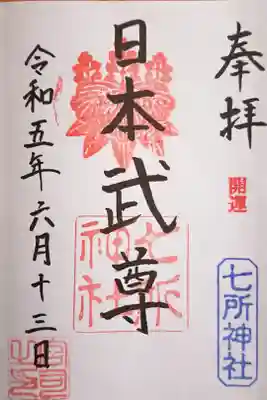 奉拝
開運
七所神社
日本武尊
七所神社
令和五年六月十三日